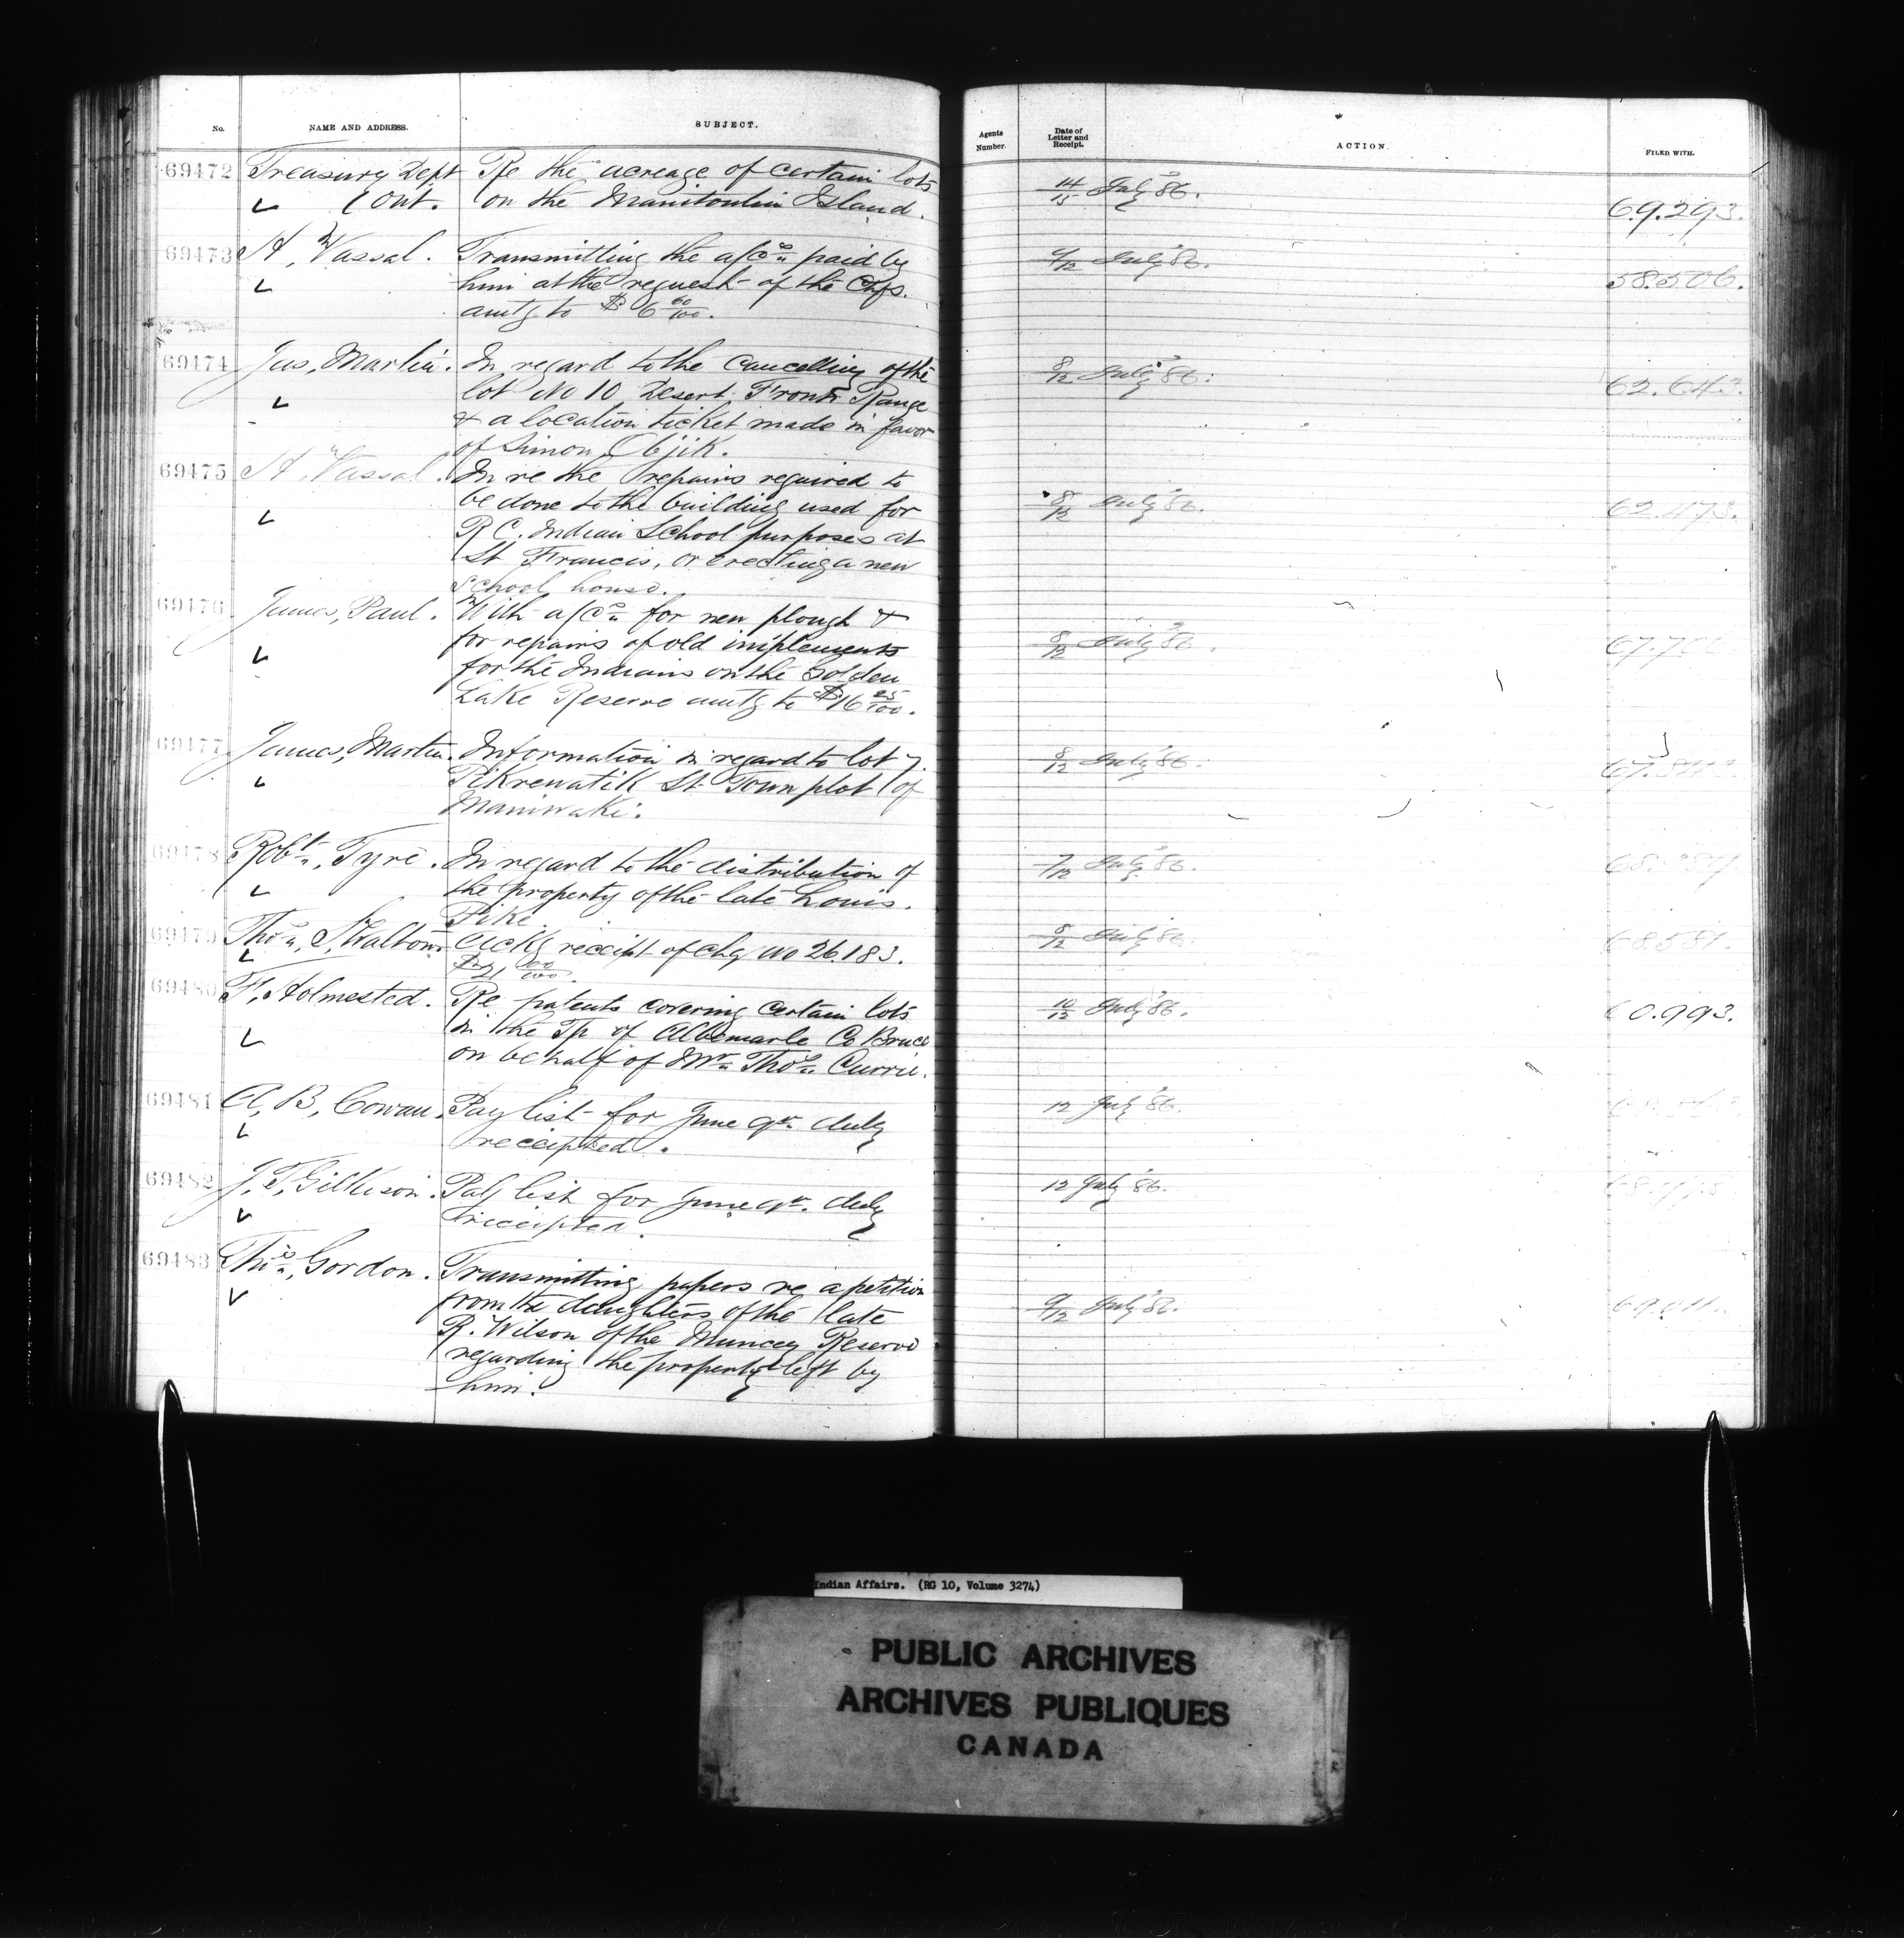 No. NAME AND ADDRESS. SUBJECT. Agents Number. Date of Letter and Receipt. ACTION. FILED WITH.
69472 Treasury Dept Re the acreage of certain lots 14/15 July 86.
(Ont. on the Manitoulin Island. 69.293.
69473 A, Vassal. Transmitting the a/cs paid by 9/12 July 86.
him at the request of the Chfs. 58.506.
amtg to $6 60/100.
69474 Jas, Martin. In regard to the cancelling of the 8/12 July 86.
lot No 10 Desert Front Range 62.643.
& a location ticket made in favor
of Simon Objik.
69475 A, Vassal. In re the repairs required to
be done to the building used for 8/12 July 86.
R C. Indian School purposes at 62.473.
St Francis, or erecting a new
School house.
69476 James, Paul. With a/cs for new plough &
for repairs of old implements 8/12 July 86.
for the Indians on the Golden
Lake Reserve amtg to $16 25/100.
69477 James, Martin. Information in regard to lot 7. 8/12 July 86.
Pikrewatik St. Town plot of
Maniwaki.
69478 Robt, Tyre. In regard to the distribution of 7/12 July 86.
the property of the late Louis.
Pike
69479 Thos, Walton. Ackg receipt of chq No 26.183. 8/12 July 86. 68581.
$21 00/100.
69480 F, Holmested. Re patents covering certain lots 10/12 July 86.
in the Tp of Albemarle Co Bruce 60.993.
on behalf of Mr Thos. Currie.
69481 A, B, Cowan. Pay list for June qr. duly 12 July 86.
receipted.
69482 J, T, Gilkison. Pay list for June qr. duly 12 July 86.
receipted.
69483 Thos, Gordon. Transmitting papers re a petition
from the daughters of the late 9/12 July 86.
R. Wilson of the Muncey Reserve
regarding the property left by
him.
Indian Affairs. (RG 10, Volume 3274)
PUBLIC ARCHIVES
ARCHIVES PUBLIQUES
CANADA